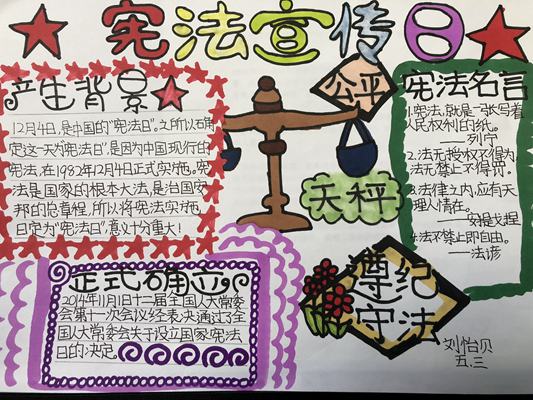 宪法宣传日
产生背景
12月4日,是中国的"宪法日"。之所以确
定这一天为"宪法日",是因为中国现行的
宪法,在1982年12月4日正式实施。宪
法是国家的根本大法,是治国安
邦的总章程,所以将宪法实施
日定为"宪法日",意义十分重大!
公平
天秤
宪法名言
1.宪法,就是一张写着
人民权利的纸。
——列宁
2.法无授权不得为,
法无禁止不得罚。
3.法律之内,应有天
理人情在。
——安提戈捏
4.法不禁止即自由。
——法谚
正式确立
2014年11月1日十二届全国人大常委
会第十一次会议经表决通过了全
国人大常委会关于设立国家宪法
日的决定。
遵纪
守法
刘怡贝
五.三